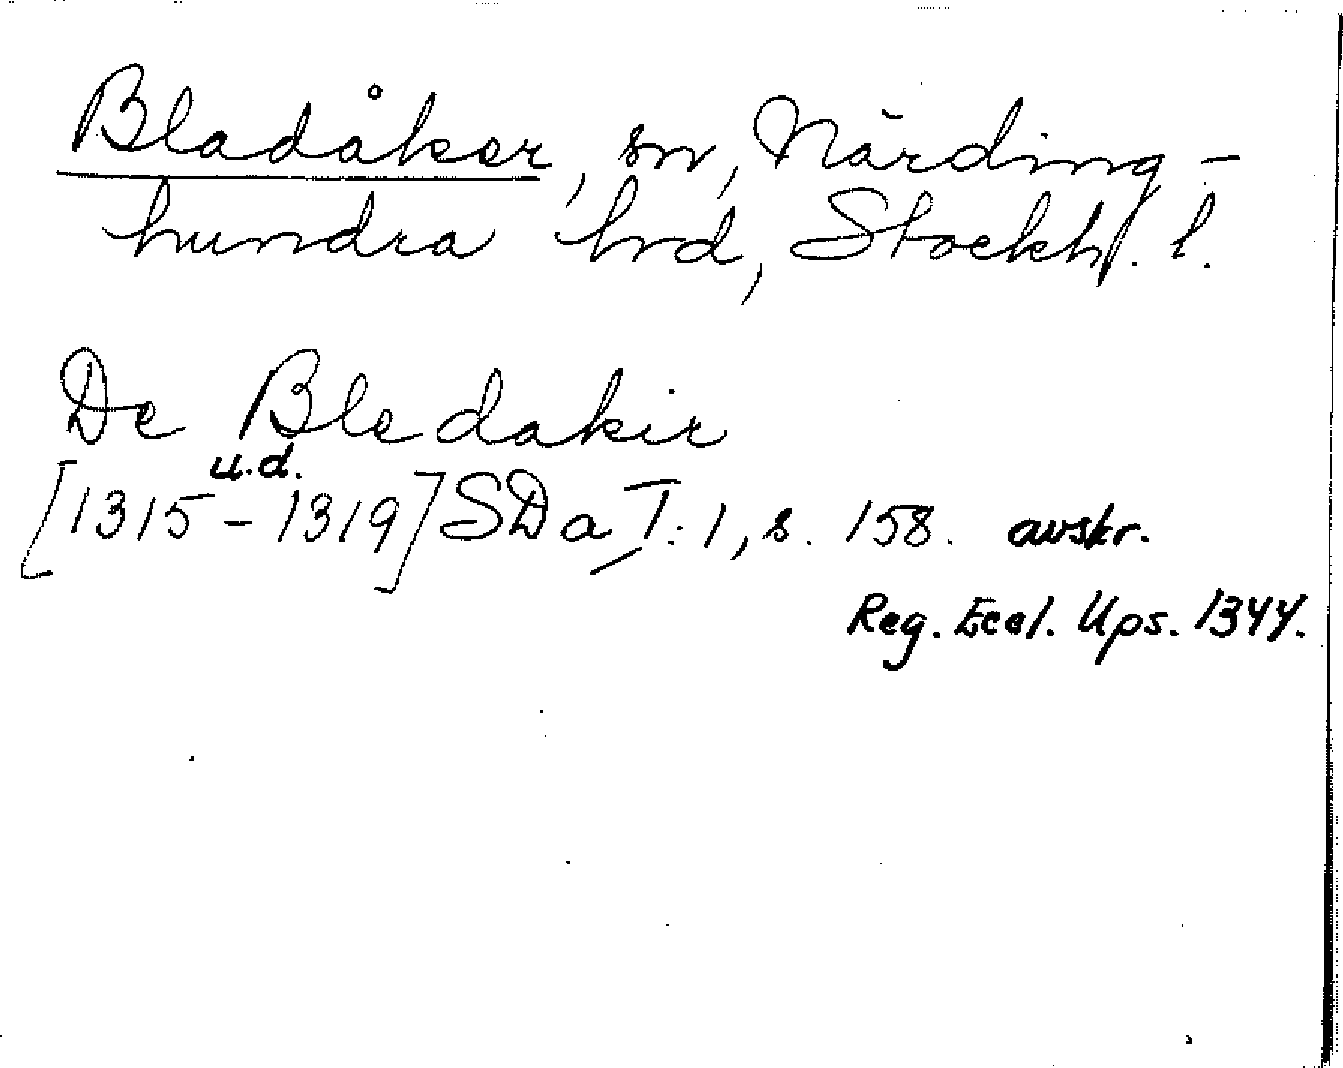 Bladåker, sn, Närding-
hundra hrd, Stockh. l.
De Bledakir
u.d.
[1315-1319] SDa, T: 1, s. 158. avskr.
Reg. Eccl. Ups. 1344.